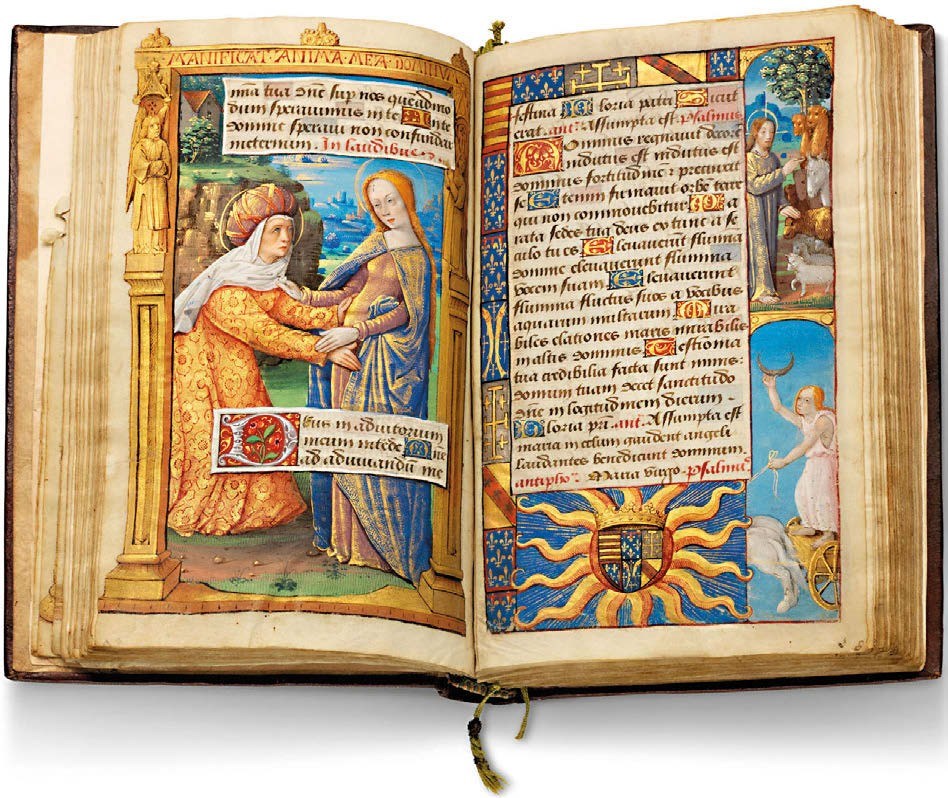 MANIFICAT·ANIMA·MEA·DOMINV
mia tua dne sup nos queadmo
dum speravimus in te In te
domine speravi non confundar
ineternum. In laudibus
Deus in adiutorium
meum intede Dne
ad adiuvandu me
festina Gloria patri Sicut
erat. ant. Assumpta est. psalmus
Dominus regnavit decore
indutus est indutus est
dominus fortitudine & precinxit
se Etenim firmavit orbe terre
qui non commovebitur Pa
rata sedes tua deus ex tunc a se
culo tu es Elevaverunt flumina
domine elevaverunt flumina
vocem suam Elevaverunt
flumina fluctus suos a vocibus
aquarum multarum Mira
biles elationes maris mirabilis
in altis dominus Testimonia
tua credibilia facta sunt nimis:
domum tuam decet sanctitudo
dne in logitudinem dierum -
Gloria pri. ant. Assumpta est
maria in celum gaudent angeli
laudantes benedicunt dominum.
antipho. Maria virgo. psalmus